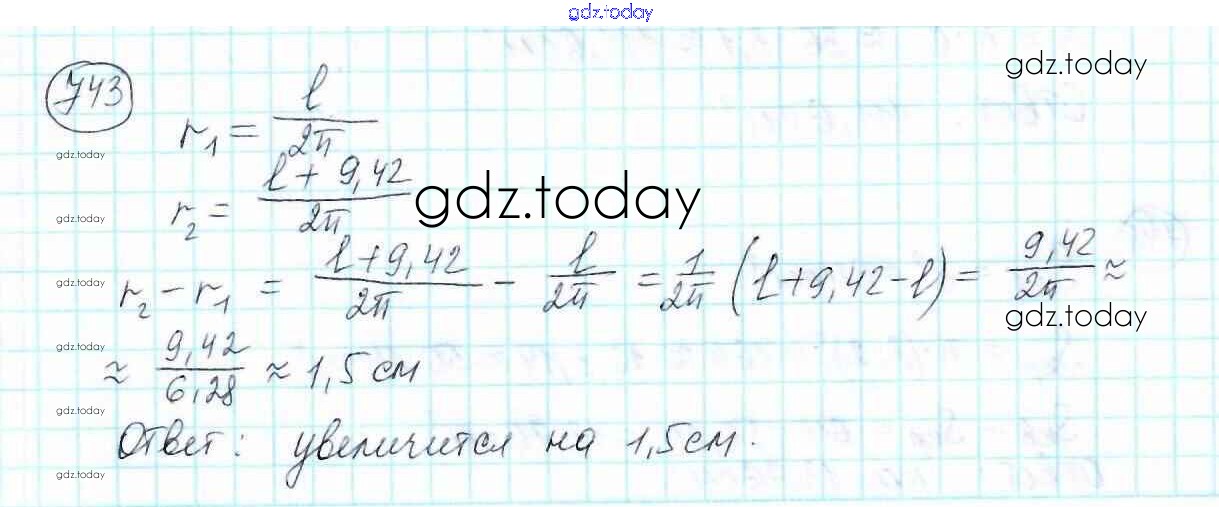 gdz.today
gdz.today
743
r₁ = l/2π
gdz.today
r₂ = (l + 9,42)/2π
gdz.today
gdz.today
r₂ − r₁ = (l+9,42)/2π − l/2π = 1/2π (l+9,42−l) = 9,42/2π ≈
gdz.today
gdz.today
gdz.today
≈ 9,42/6,28 ≈ 1,5 см
gdz.today
Ответ: увеличится на 1,5 см.
gdz.today